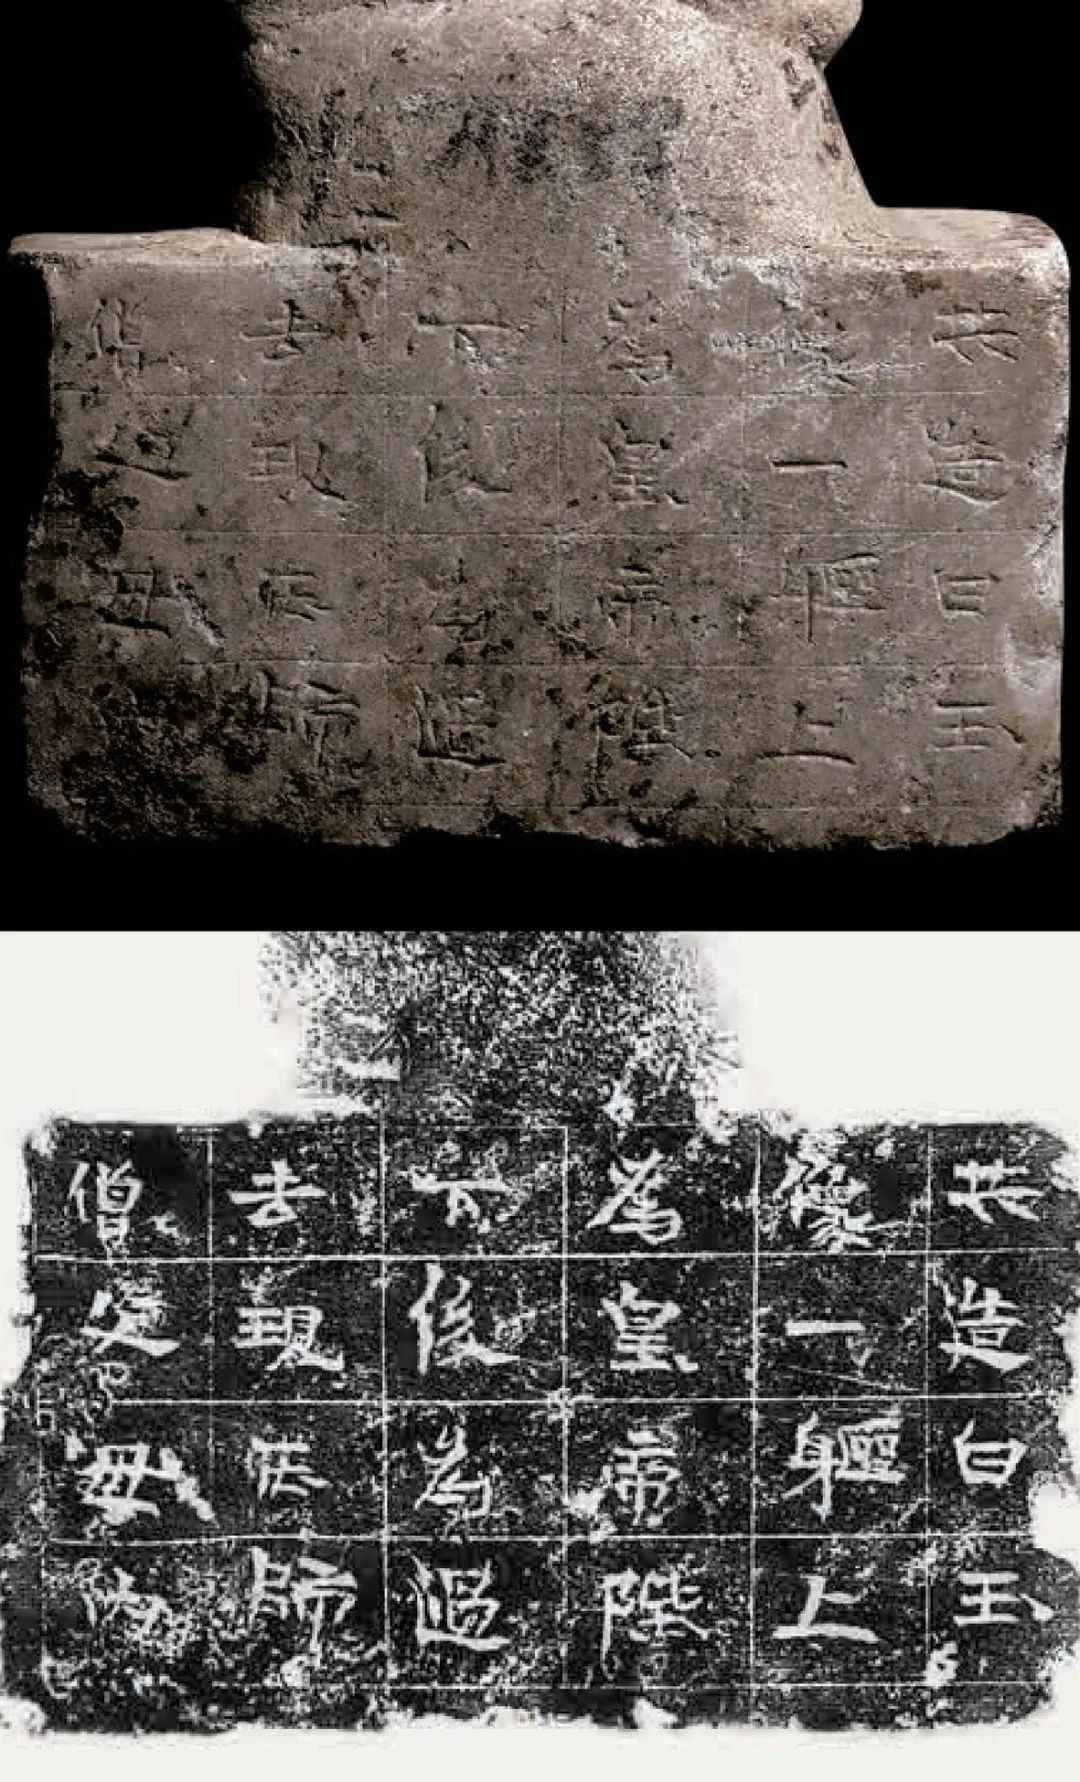 共造白玉
像一軀上
為皇帝陛
下後為過
去現在師
僧父母